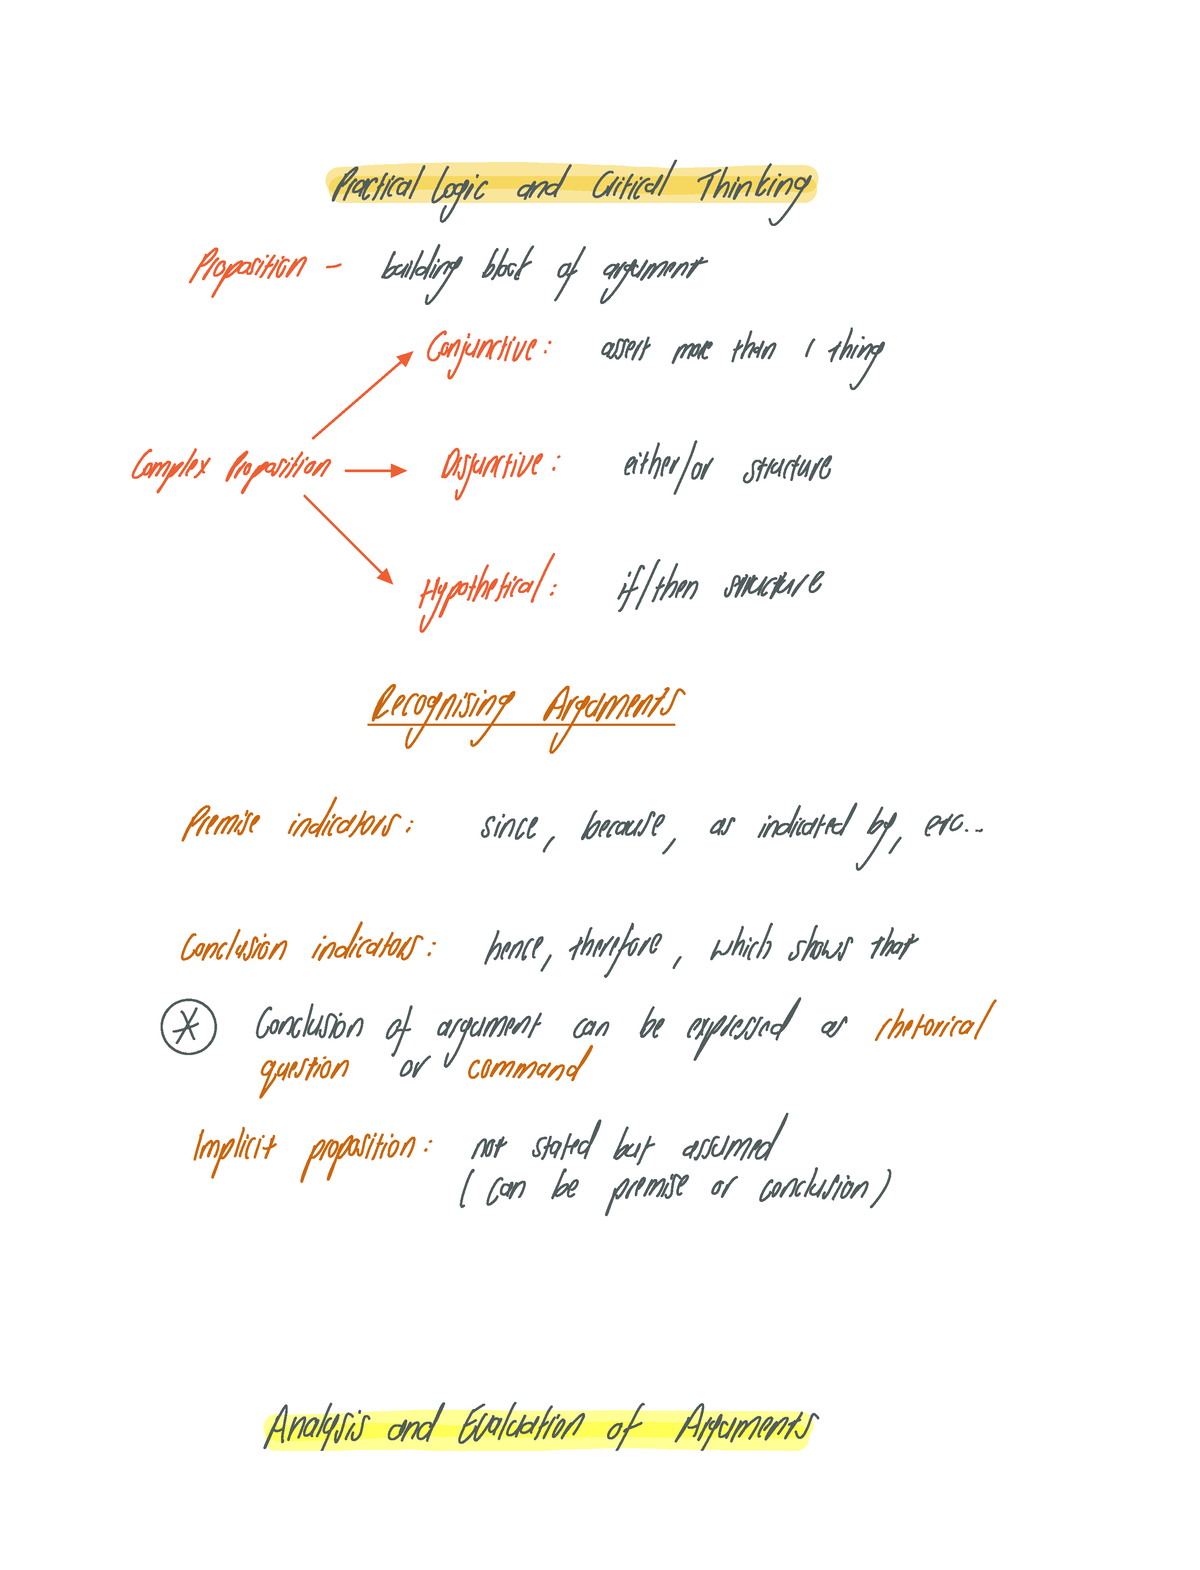 Practical Logic and Critical Thinking
Proposition - building block of argument
Conjunctive: assert more than 1 thing
Complex Proposition
Disjunctive: either/or structure
Hypothetical: if/then structure
Recognising Arguments
Premise indicators: since, because, as indicated by, etc...
Conclusion indicators: hence, therefore, which shows that
* Conclusion of argument can be expressed as rhetorical
question or command
Implicit proposition: not stated but assumed
(can be premise or conclusion)
Analysis and Evaluation of Arguments